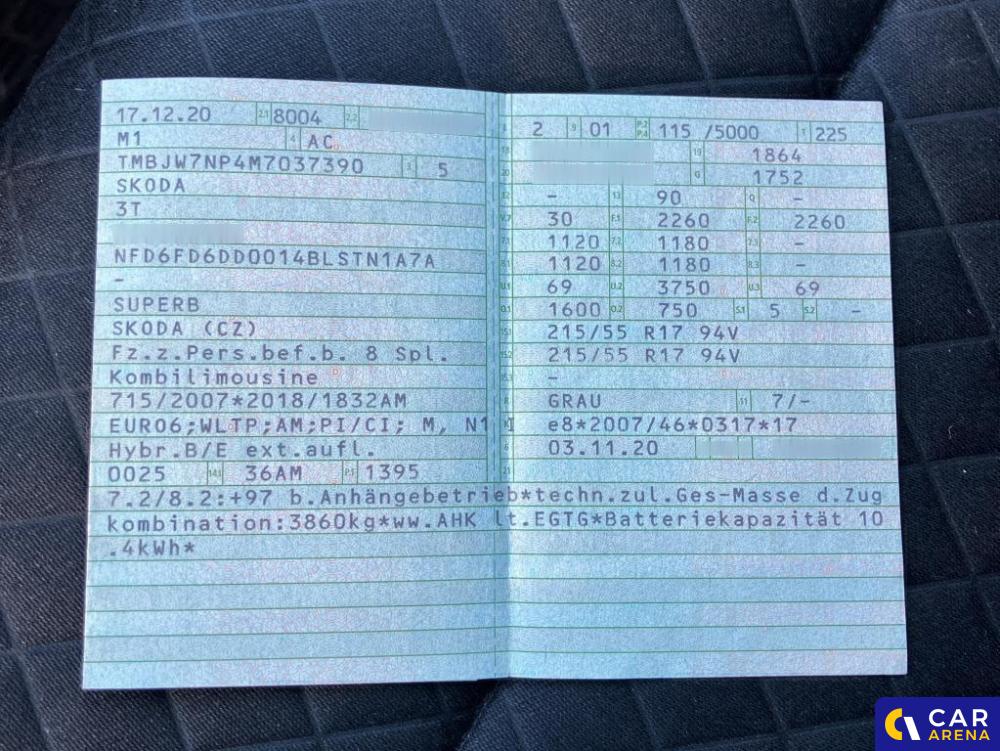 17.12.20 2.1 8004 2.2
M1 4 AC
TMBJW7NP4M7037390 3 5
SKODA
3T
NFD6FD6DD0014BLSTN1A7A
–
SUPERB
SKODA (CZ)
Fz.z.Pers.bef.b. 8 Spl.
Kombilimousine
715/2007*2018/1832AM
EURO6;WLTP;AM;PI/CI; M, N1 I
Hybr.B/E ext.aufl.
0025 14.1 36AM P.1 1395
2 9 01 P.2 P.4 115 /5000 T 225
19 1864
20 G 1752
12 – 13 90 Q –
V.7 30 F.1 2260 F.2 2260
7.1 1120 7.2 1180 7.3 –
8.1 1120 8.2 1180 8.3 –
U.1 69 U.2 3750 U.3 69
O.1 1600 O.2 750 S.1 5 S.2 –
15.1 215/55 R17 94V
15.2 215/55 R17 94V
–
R GRAU 11 7/-
K e8*2007/46*0317*17
6 03.11.20
21
7.2/8.2:+97 b.Anhängebetrieb*techn.zul.Ges-Masse d.Zug
kombination:3860kg*ww.AHK lt.EGTG*Batteriekapazität 10
.4kWh*
CAR
ARENA